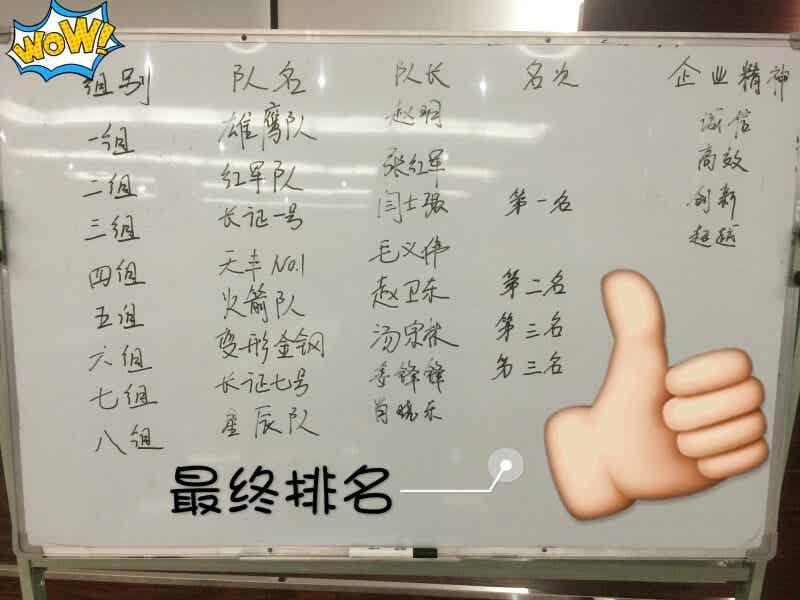 WOW!
组别 队名 队长 名次 企业精神
一组 雄鹰队 赵明 诚信
二组 红军队 张红军 高效
三组 长证一号 闫士强 第一名 创新
四组 天丰NO.1 毛义伟 超越
五组 火箭队 赵卫东 第二名
六组 变形金钢 汤宋林 第三名
七组 长证七号 姜锋锋 第三名
八组 星辰队 肖晓东
最终排名